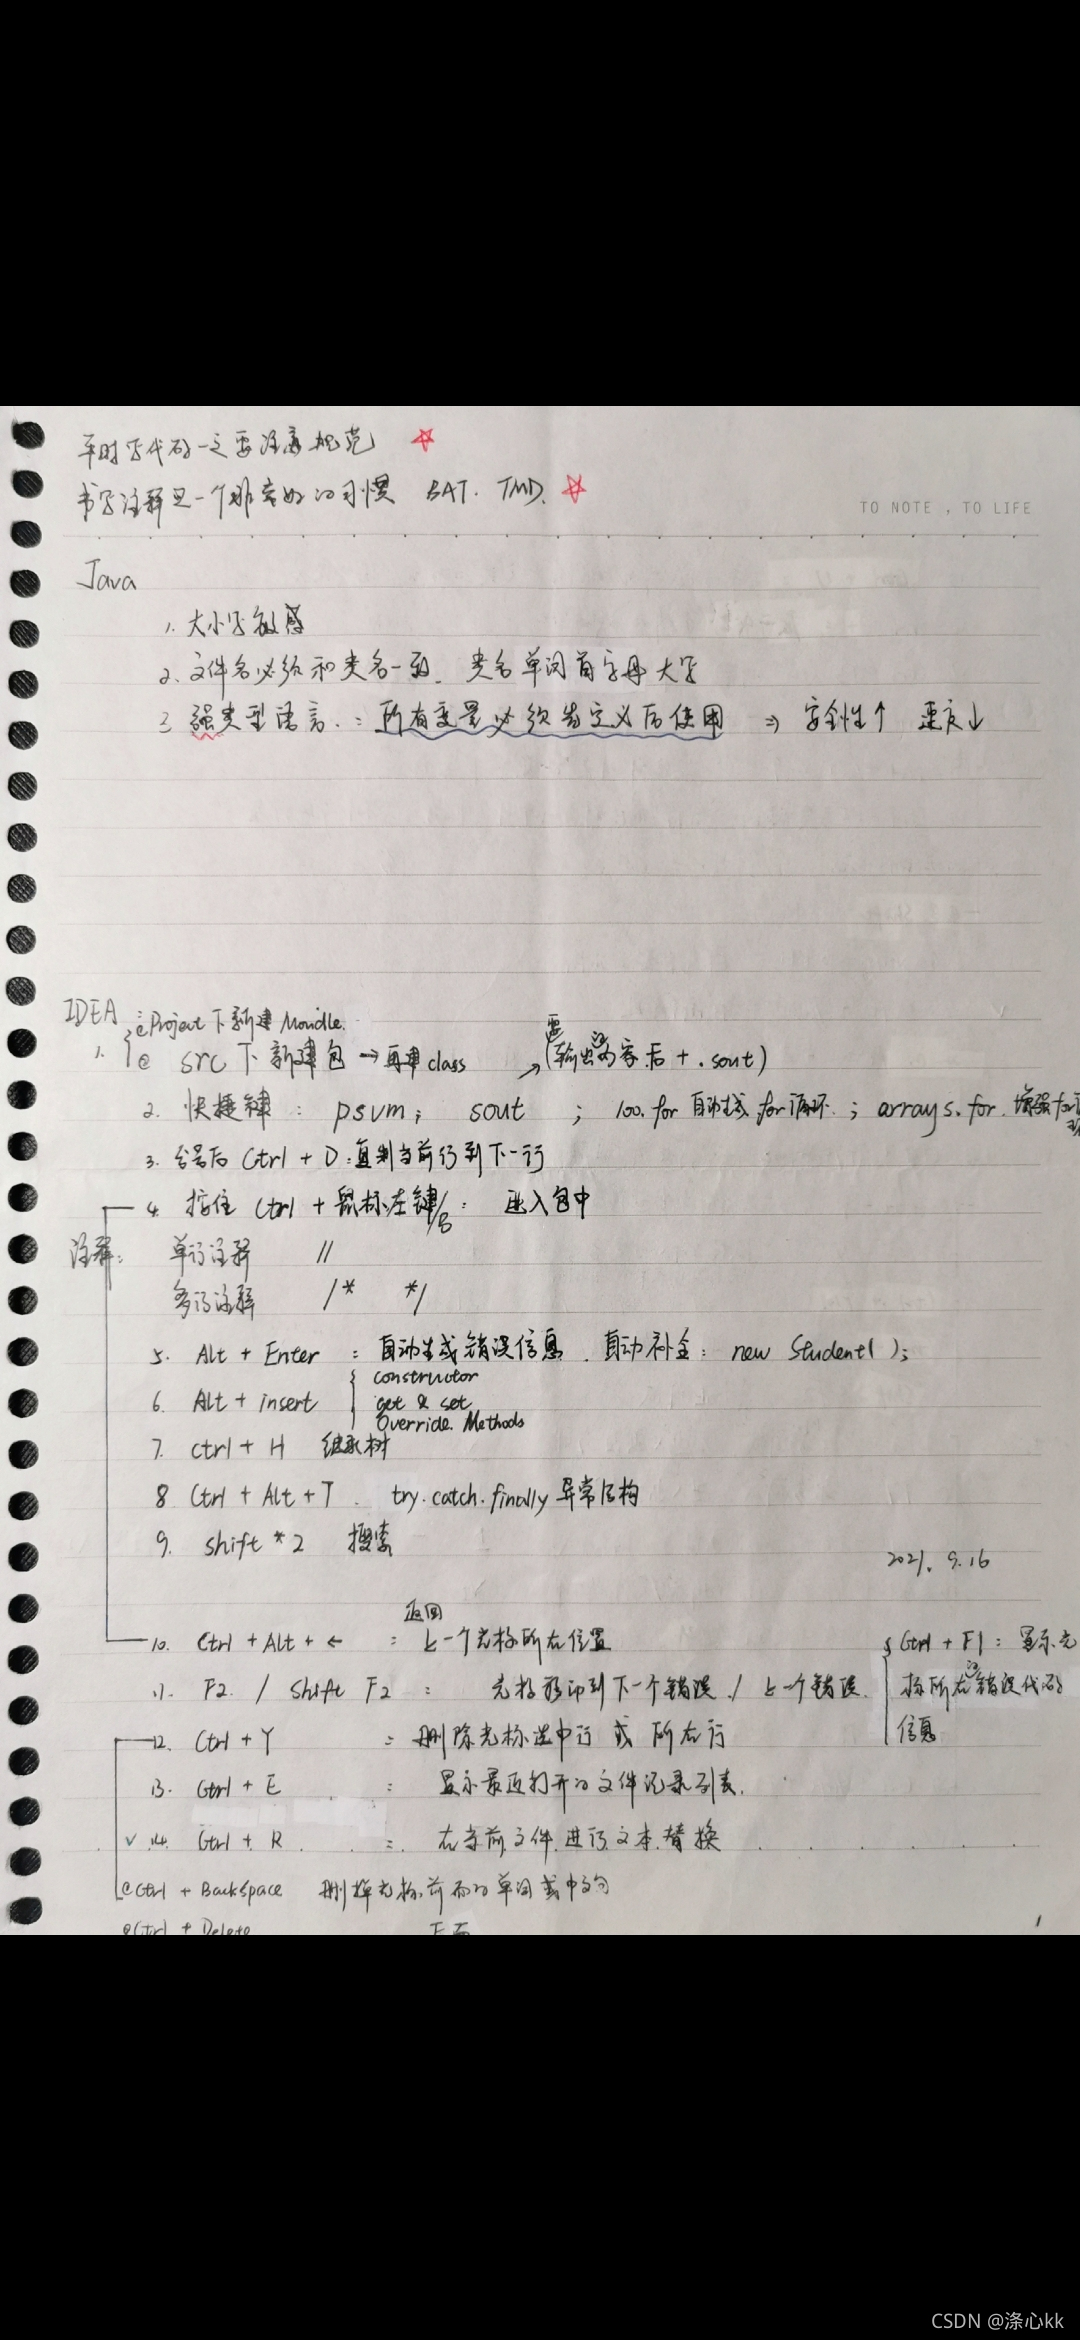 平时写代码一定要注意规范 ☆
书写注释是一个非常好的习惯 BAT. TMD. ☆
TO NOTE , TO LIFE
Java
1. 大小写敏感
2. 文件名必须和类名一致. 类名单词首字母大写
3 强类型语言.: 所有变量必须先定义后使用 ⇒ 安全性↑ 速度↓
IDEA
Project下新建Moudle.
1. src下新建包→再建class (要输出的内容后 + .sout)
2. 快捷键: psvm; sout ; 100.for 自动生成 for循环. ; arrays.for. 增强for
3. 分号后 Ctrl + D: 复制当前行到下一行
4. 按住 Ctrl + 鼠标左键/B: 进入包中
注释: 单行注释 //
多行注释 /* */
5. Alt + Enter : 自动生成错误信息. 自动补全: new Student();
6. Alt + insert { constructor
get & set
Override. Methods
7. ctrl + H 继承树
8 Ctrl + Alt + T. try.catch.finally 异常结构
9. shift * 2 搜索
2021. 9.16
10. Ctrl + Alt + ← : 返回上一个光标所在位置
11. F2. / Shift F2 : 光标移动到下一个错误 / 上一个错误.
{ Ctrl + F1: 显示光
标所在的错误代码
信息
12. Ctrl + Y : 删除光标选中行 或 所在行
13. Ctrl + E : 显示最近打开的文件记录列表.
√ 14. Ctrl + R : 在当前文件进行文本替换
Ctrl + BackSpace 删掉光标前面的单词或中文句
Ctrl + Delete 后面
1
CSDN @涤心kk